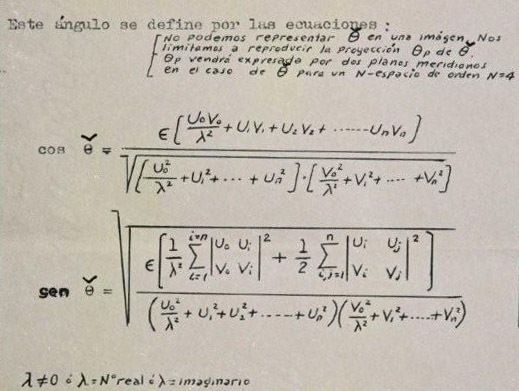 Este ángulo se define por las ecuaciones:
[No podemos representar θ̌ en una imágen. Nos
limitamos a reproducir la proyección θp de θ̌.
θp vendrá expresada por dos planos meridianos
en el caso de θ̌ para un N-espacio de orden N=4
cos θ̌ = ϵ[U₀V₀/λ² + U₁V₁ + U₂V₂ + ------UₙVₙ] / √([U₀²/λ² + U₁² + ... + Uₙ²]·[V₀²/λ² + V₁² + .... + Vₙ²])
sen θ̌ = √(ϵ[1/λ² ∑ᵢ₌₁ⁱ⁼ⁿ |U₀ Uᵢ; V₀ Vᵢ|² + 1/2 ∑ᵢ,ⱼ₌₁ⁿ |Uᵢ Uⱼ; Vᵢ Vⱼ|²] / (U₀²/λ² + U₁² + U₂² + -----+ Uₙ²)(V₀²/λ² + V₁² + ....+ Vₙ²))
λ≠0 ó λ=Nº real ó λ=imaginario